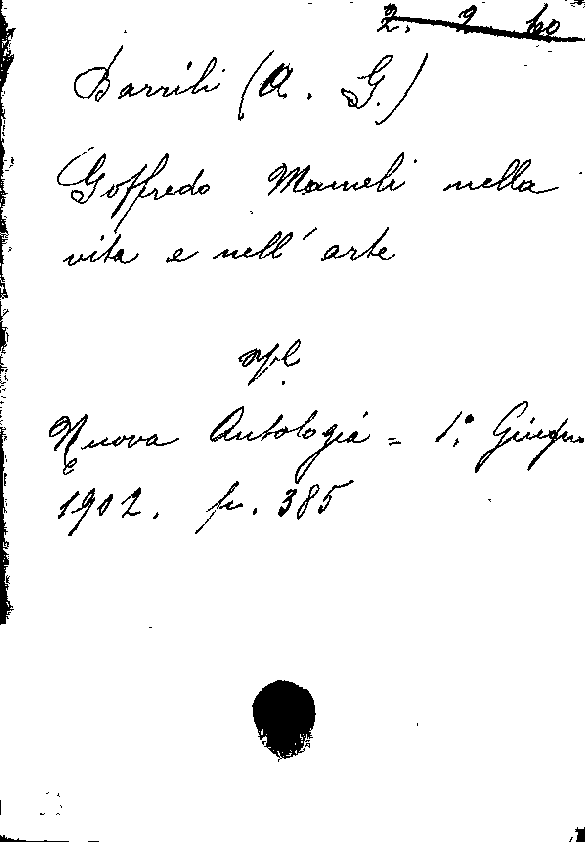 2. 2 60
Barrili (A. G.)
Goffredo Mameli nella
vita e nell' arte
Nuova Antologia = 1.° Giugno
1902. p. 385